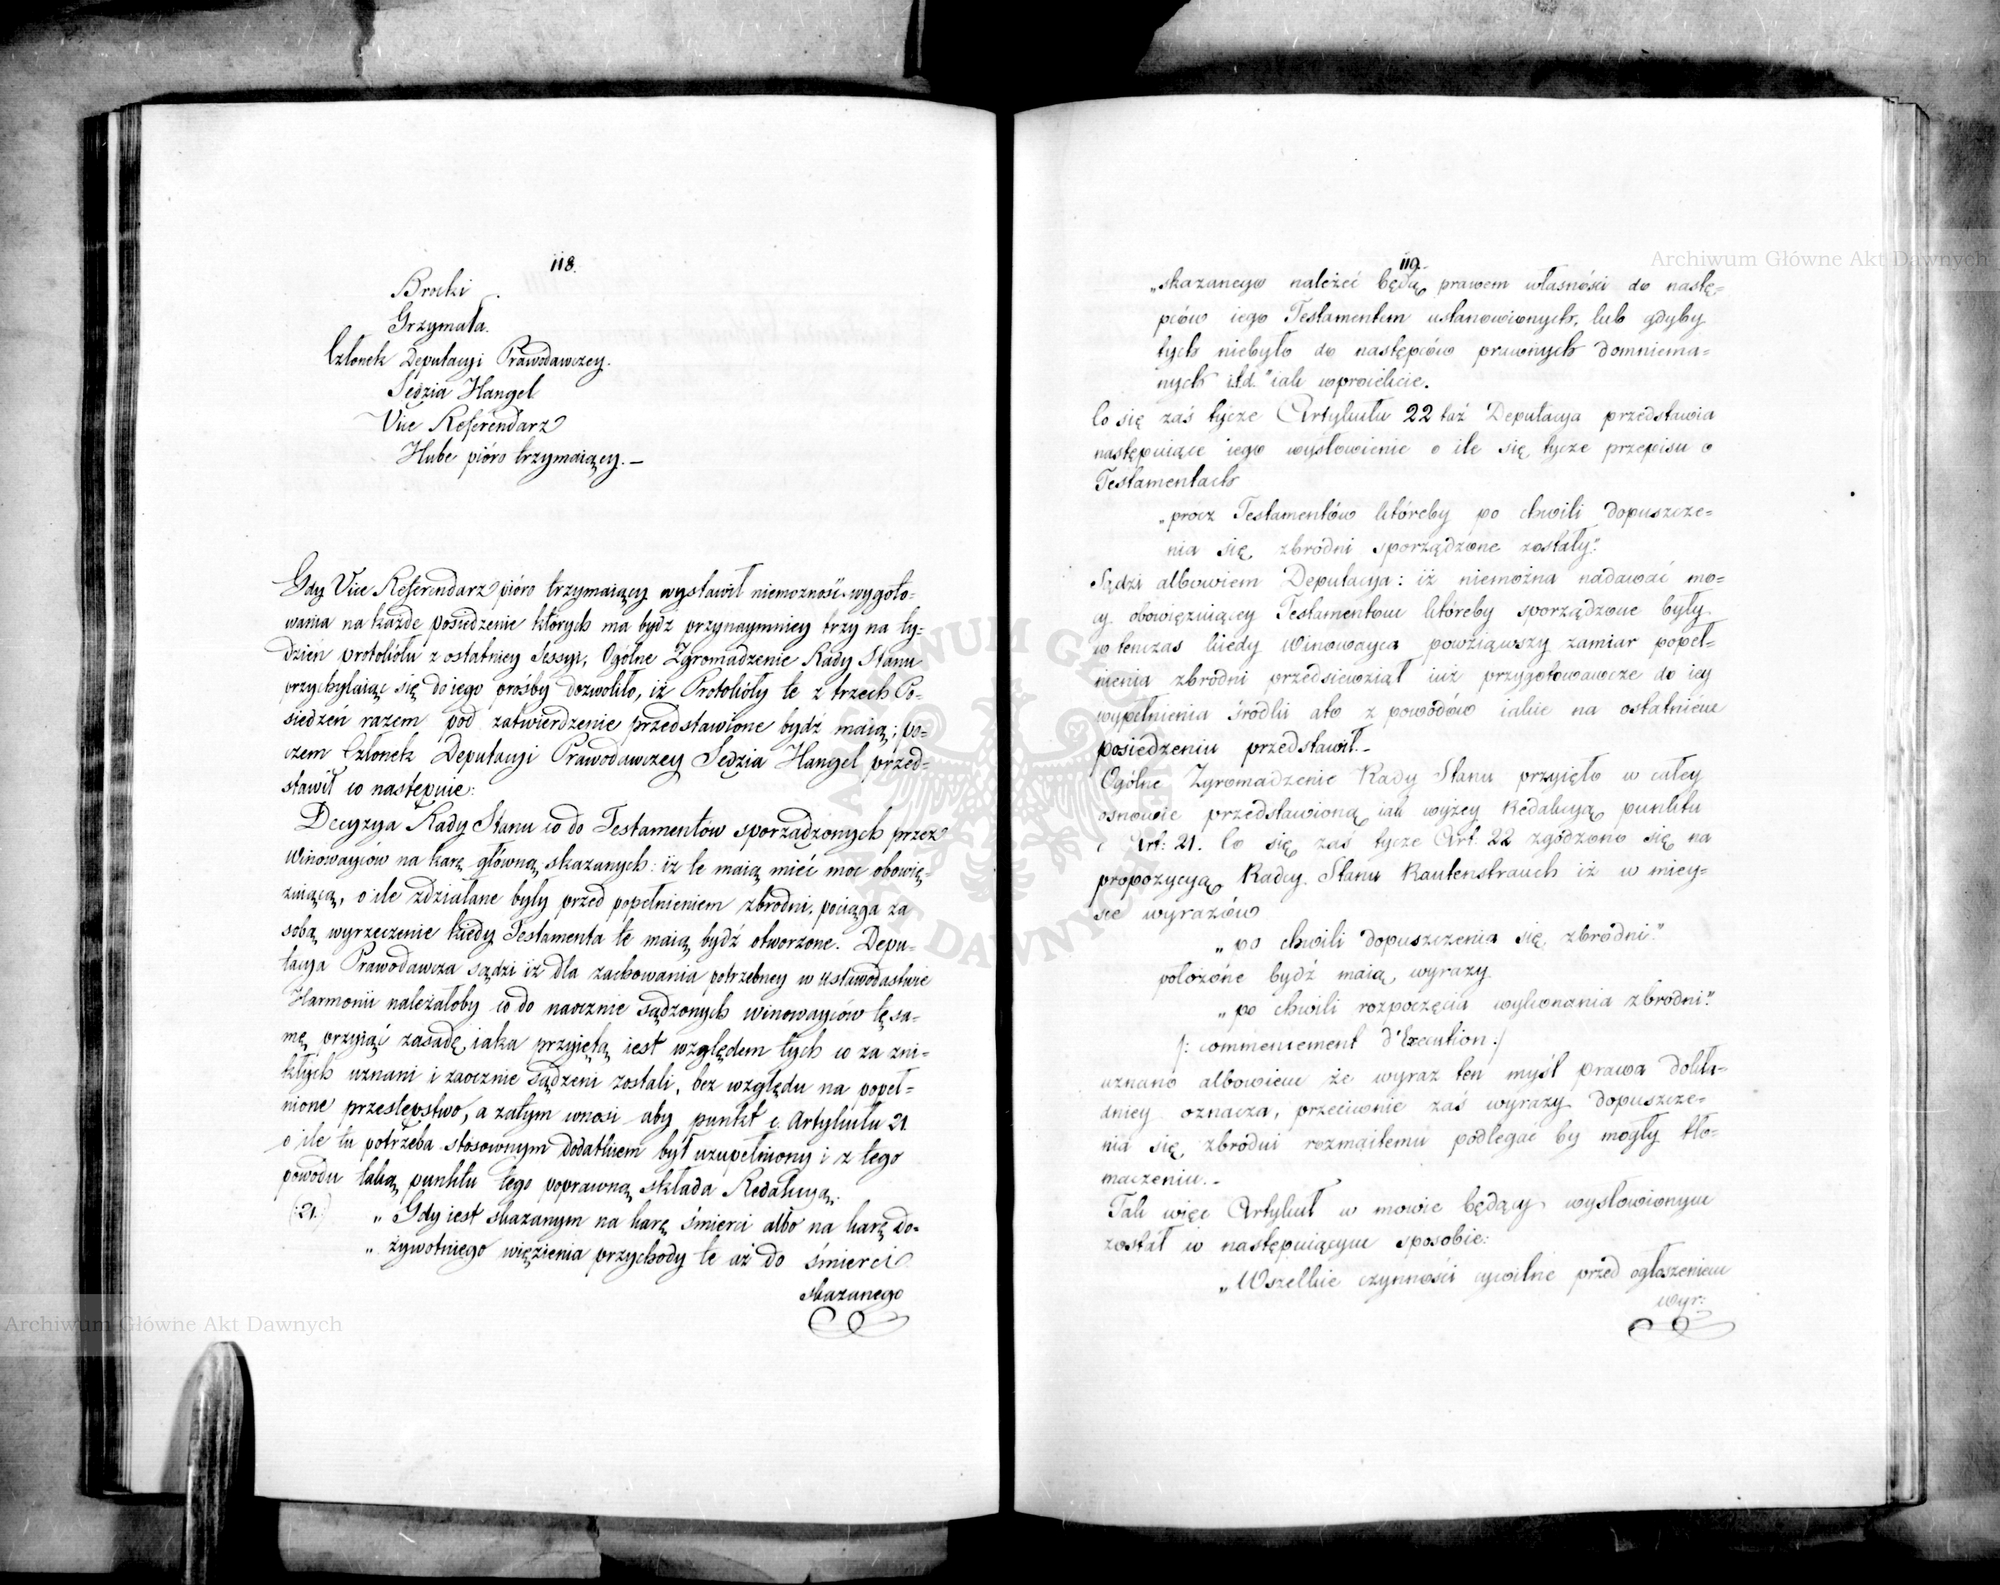 118.
Brocki
Grzymała.
Członek Deputacyi Prawodawczey.
Sędzia Hangel
Vice Referendarz
Hube pióro trzymaiący. —
Gdy Vice Referendarz pióro trzymaiący wystawił niemożność wygoto-
wania na każde posiedzenie których ma bydź przynaymniey trzy na ty-
dzień protokółu z ostatniey Sessyi, Ogólne Zgromadzenie Rady Stanu
przychylaiąc się do iego prośby dozwoliło, iż Protokóły te z trzech Po-
siedzeń razem pod zatwierdzenie przedstawione bydź maią; po-
czem Członek Deputacyi Prawodawczey Sędzia Hangel przed-
stawił co następuie:
Decyzya Rady Stanu co do Testamentów sporządzonych przez
Winowayców na karę główną skazanych: iż te maią mieć moc obowię-
zuiącą, o ile zdziałane były przed popełnieniem zbrodni, pociąga za
sobą wyrzeczenie kiedy Testamenta te maią bydź otworzone. Depu-
tacya Prawodawcza sądzi iż dla zachowania potrzebney w ustawodastwie
Harmonii należałoby co do naocznie sądzonych winowayców tę sa-
mę przyiąć zasadę iaka przyiętą iest względem tych co za zni-
kłych uznani i zaocznie sądzeni zostali, bez względu na popeł-
nione przestępstwo, a zatym wnosi aby punkt c. Artykułu 21
o ile tu potrzeba stosownym dodatkiem był uzupełniony i z tego
powodu taką punktu tego poprawną składa Redakcyą:
(:21.) „Gdy iest skazanym na karę śmierci albo na karę do-
„żywotniego więzienia przychody te aż do śmierci
skazanego
119.
„skazanego należeć będą prawem własności do nastę-
pców iego Testamentem ustanowionych, lub gdyby
tych niebyło do następców prawnych domniema-
nych itd." iak w proiekcie.
Co się zaś tycze Artykułu 22 taż Deputacya przedstawia
następuiące iego wysłowienie o ile się tycze przepisu o
Testamentach
„prócz Testamentów któreby po chwili dopuszcze-
nia się zbrodni sporządzone zostały."
Sądzi albowiem Deputacya: iż niemożna nadawać mo-
cy obowięzuiącey Testamentom któreby sporządzone były
w tenczas kiedy Winowayca powziąwszy zamiar popeł-
nienia zbrodni przedsiewziął iuż przygotowawcze do iey
wypełnienia środki a to z powodów iakie na ostatniem
posiedzeniu przedstawił. —
Ogólne Zgromadzenie Rady Stanu przyięło w całey
osnowie przedstawioną iak wyżey Redakcyą punktu
c Art: 21. Co się zaś tycze Art. 22 zgodzono się na
propozycyą Radcy Stanu Rautenstrauch iż w miey-
sce wyrazów
„po chwili dopuszczenia się zbrodni."
położone bydź maią wyrazy
„po chwili rozpoczęcia wykonania zbrodni."
/: commencement d'Execution :/
uznano albowiem że wyraz ten myśl prawa dokła-
dniey oznacza, przeciwnie zaś wyrazy dopuszcze-
nia się zbrodni rozmaitemu podlegać by mogły tło-
maczeniu. —
Tak więc Artykuł w mowie będący wysłowionym
został w następuiącym sposobie:
„Wszelkie czynności cywilne przed ogłoszeniem
wyr:
Archiwum Główne Akt Dawnych
Archiwum Główne Akt Dawnych
ARCHIWUM GŁÓWNE AKT DAWNYCH